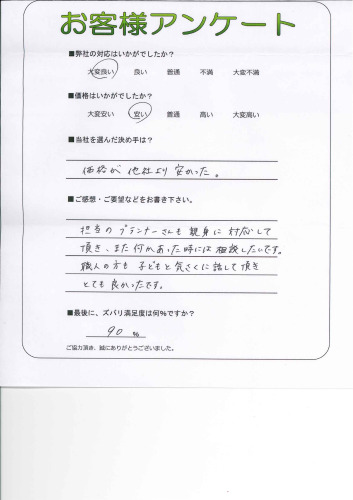 お客様アンケート
■弊社の対応はいかがでしたか?
大変良い 良い 普通 不満 大変不満
■価格はいかがでしたか?
大変安い 安い 普通 高い 大変高い
■当社を選んだ決め手は?
価格が他社より安かった。
■ご感想・ご要望などをお書き下さい。
担当のプランナーさんも親身に対応して
頂き、また何かあった時には相談したいです。
職人の方も子どもと気さくに話して頂き
とても良かったです。
■最後に、ズバリ満足度は何%ですか?
90 %
ご協力頂き、誠にありがとうございました。